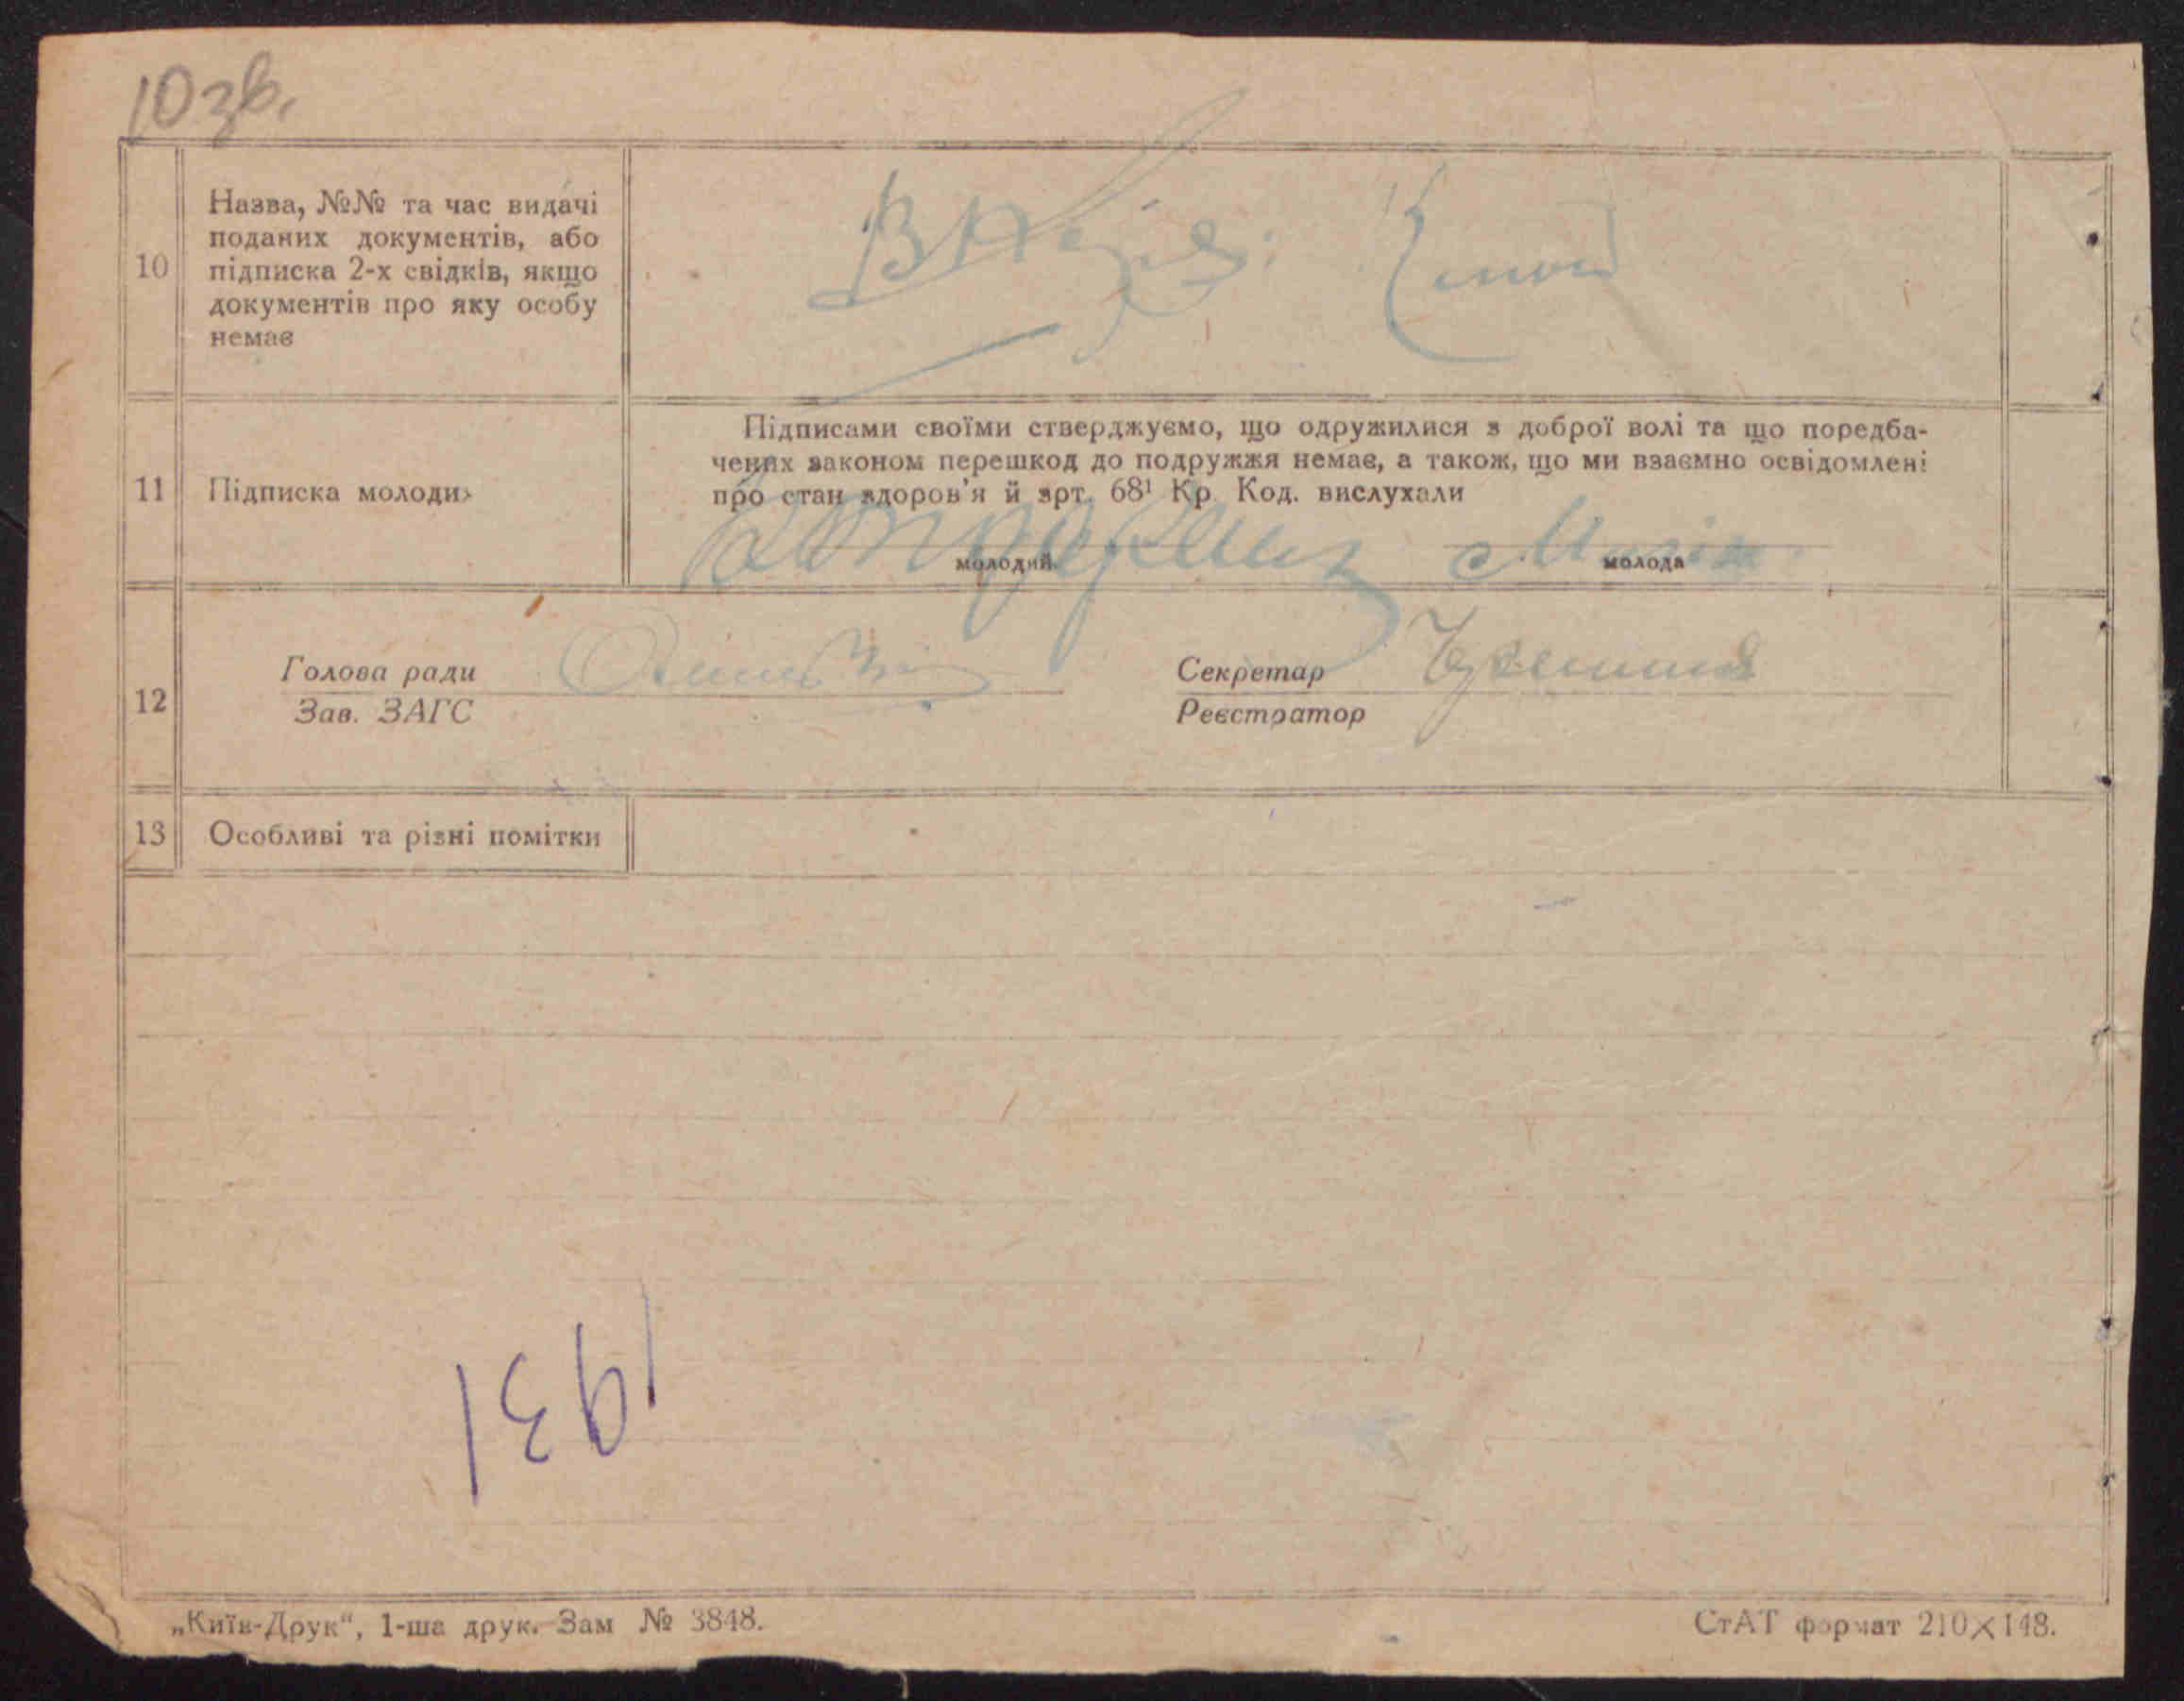 10 зв.
10
Назва, №№ та час видачі
поданих документів, або
підписка 2-х свідків, якщо
документів про яку особу
немає
11
Підписка молодих
Підписами своїми стверджуємо, що одружилися з доброї волі та що поредба-
чених законом перешкод до подружжя немає, а також, що ми взаємно освідомлені
про стан здоров'я й арт. 68¹ Кр. Код. вислухали
молодий
молода
12
Голова ради
Зав. ЗАГС
Секретар
Реєстратор
13
Особливі та різні помітки
1931
„Київ-Друк“, 1-ша друк. Зам № 3848.
СтАТ формат 210×148.